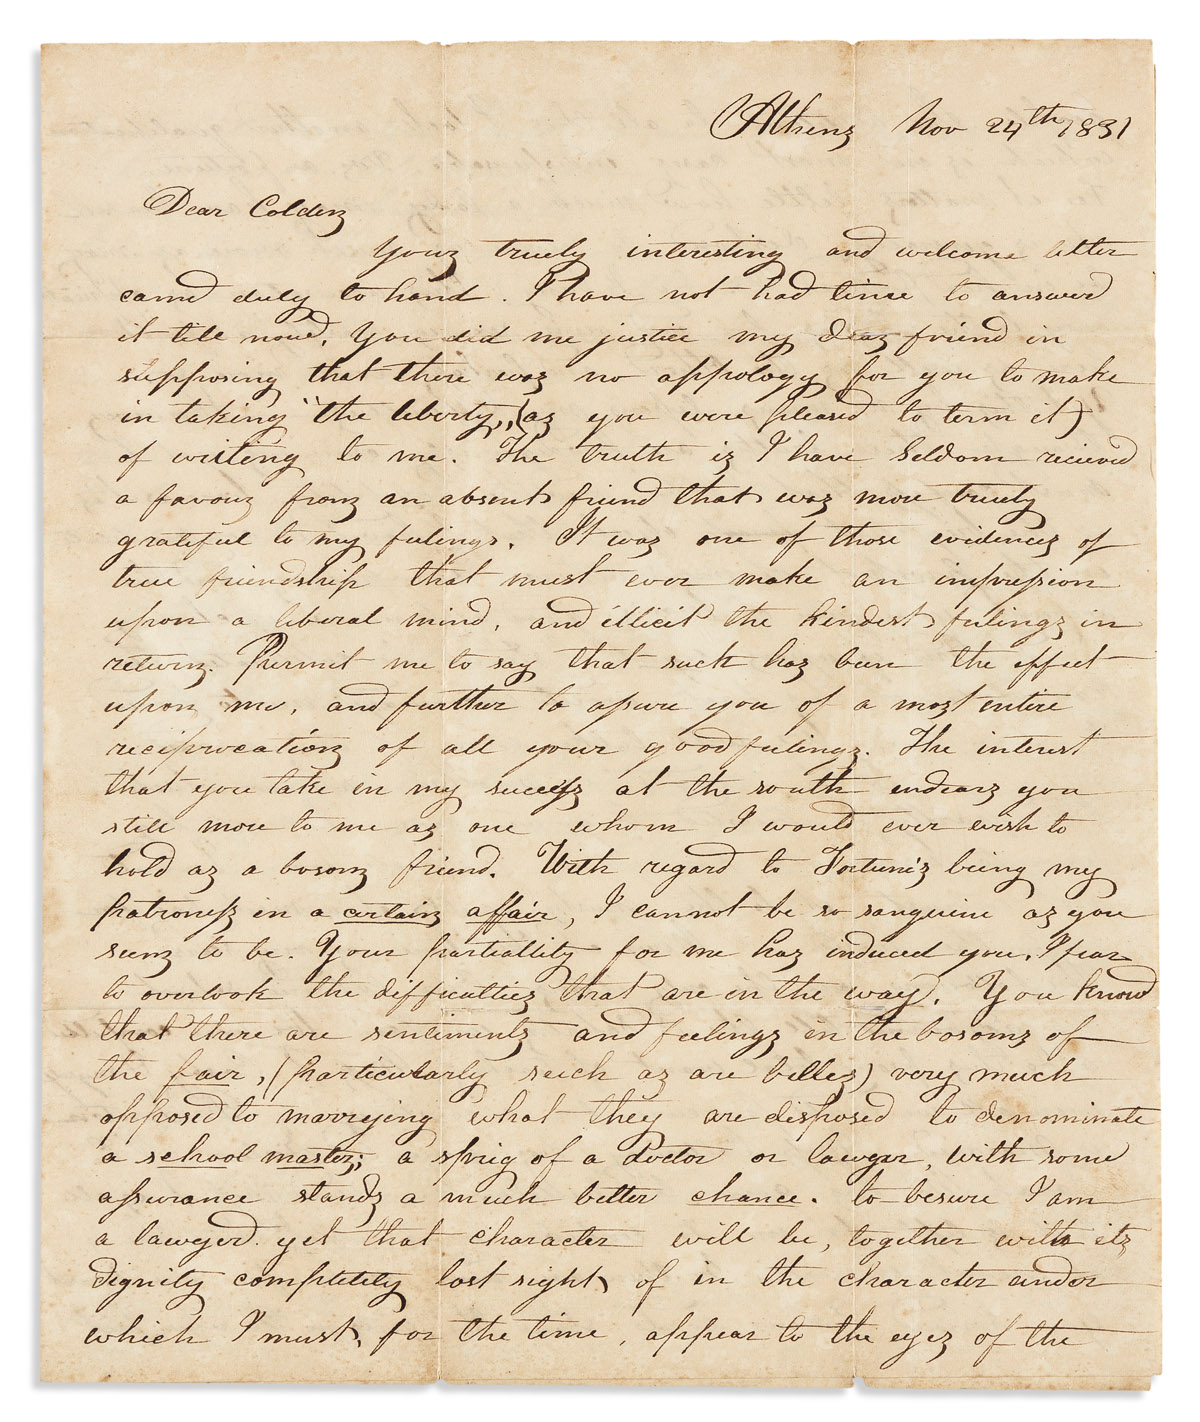 Athens Nov 24th 1831
Dear Colden
Yours truly interesting and welcome letter
came duly to hand. I have not had time to answer
it till now. You did me justice my dear friend in
supposing that there was no appology for you to make
in taking "the liberty,, (as you were pleased to term it)
of writing to me. The truth is I have seldom recieved
a favour from an absent friend that was more truly
grateful to my feelings. It was one of those evidences of
true friendship that must ever make an impression
upon a liberal mind, and illicit the kindest feelings in
return. Permit me to say that such has been the effect
upon me, and further to assure you of a most entire
reciprocation of all your good feelings. The interest
that you take in my success at the south endears you
still more to me as one whom I would ever wish to
hold as a bosom friend. With regard to Fortune's being my
patroness in a certain affair, I cannot be so sanguine as you
seem to be. Your partiallity for me has induced you, I fear
to overlook the difficulties that are in the way. You know
that there are sentiments and feelings in the bosoms of
the fair, (particularly such as are belles) very much
opposed to marrying what they are disposed to denominate
a school master; a sprig of a doctor or lawyer, with some
assurance stands a much better chance. to be sure I am
a lawyer. yet that character will be, together with its
dignity completely lost sight of in the character under
which I must, for the time, appear to the eyes of the